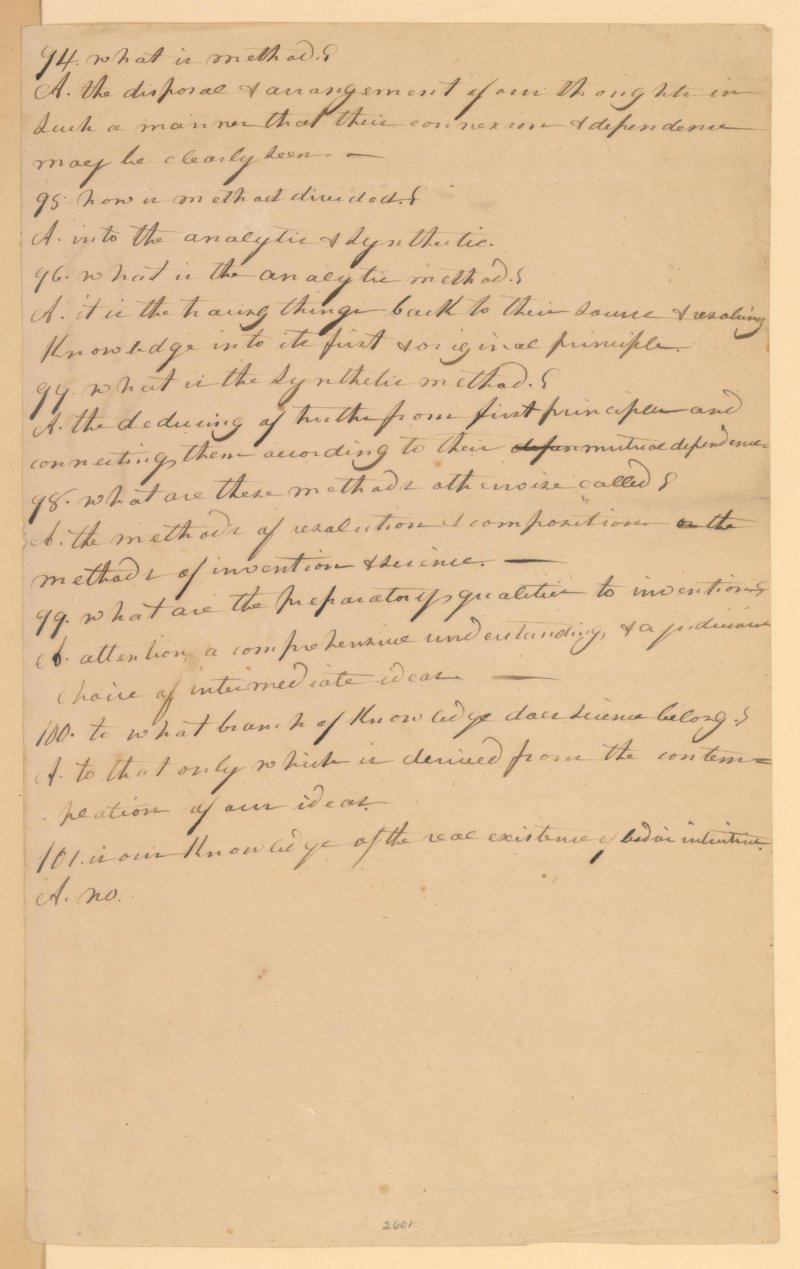 94. what is method?
A. the disposal & arrangement of our thoughts in
such a manner that their connexion & dependence
may be clearly seen. —
95. how is method divided?
A. into the analytic & synthetic.
96. what is the analytic method?
A. it is the tracing things back to their source & resolving
Knowledge into its first & original principles.
97. what is the synthetic method?
A. the deducing of truths from first principles and
connecting them according to their mutual dependence.
98. what are these methods otherwise called?
A. the methods of resolution & composition or the
methods of invention & science. —
99. what are the preparatory qualities to invention?
A. attention, a comprehensive understanding, & a judicious
choice of intermediate ideas. —
100. to what branch of Knowledge does science belong?
A. to that only which is derived from the contem=
plation of our ideas.
101. is our Knowledge of the real existence of bodies intuitive.
A. no.
2601